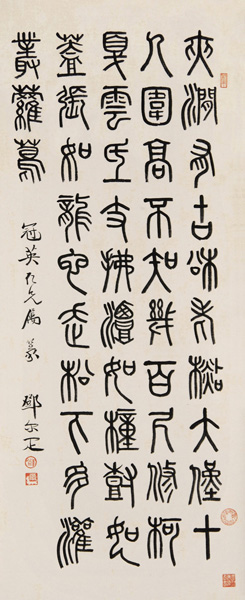 夾澗有古松老檆大僅十
人圍高不知幾百尺修柯
戛雲氐支拂潭如橦尌如
蓋張如龍它走松下多灌
叢蘿蔦
冠英仁兄屬篆 鄧尔疋